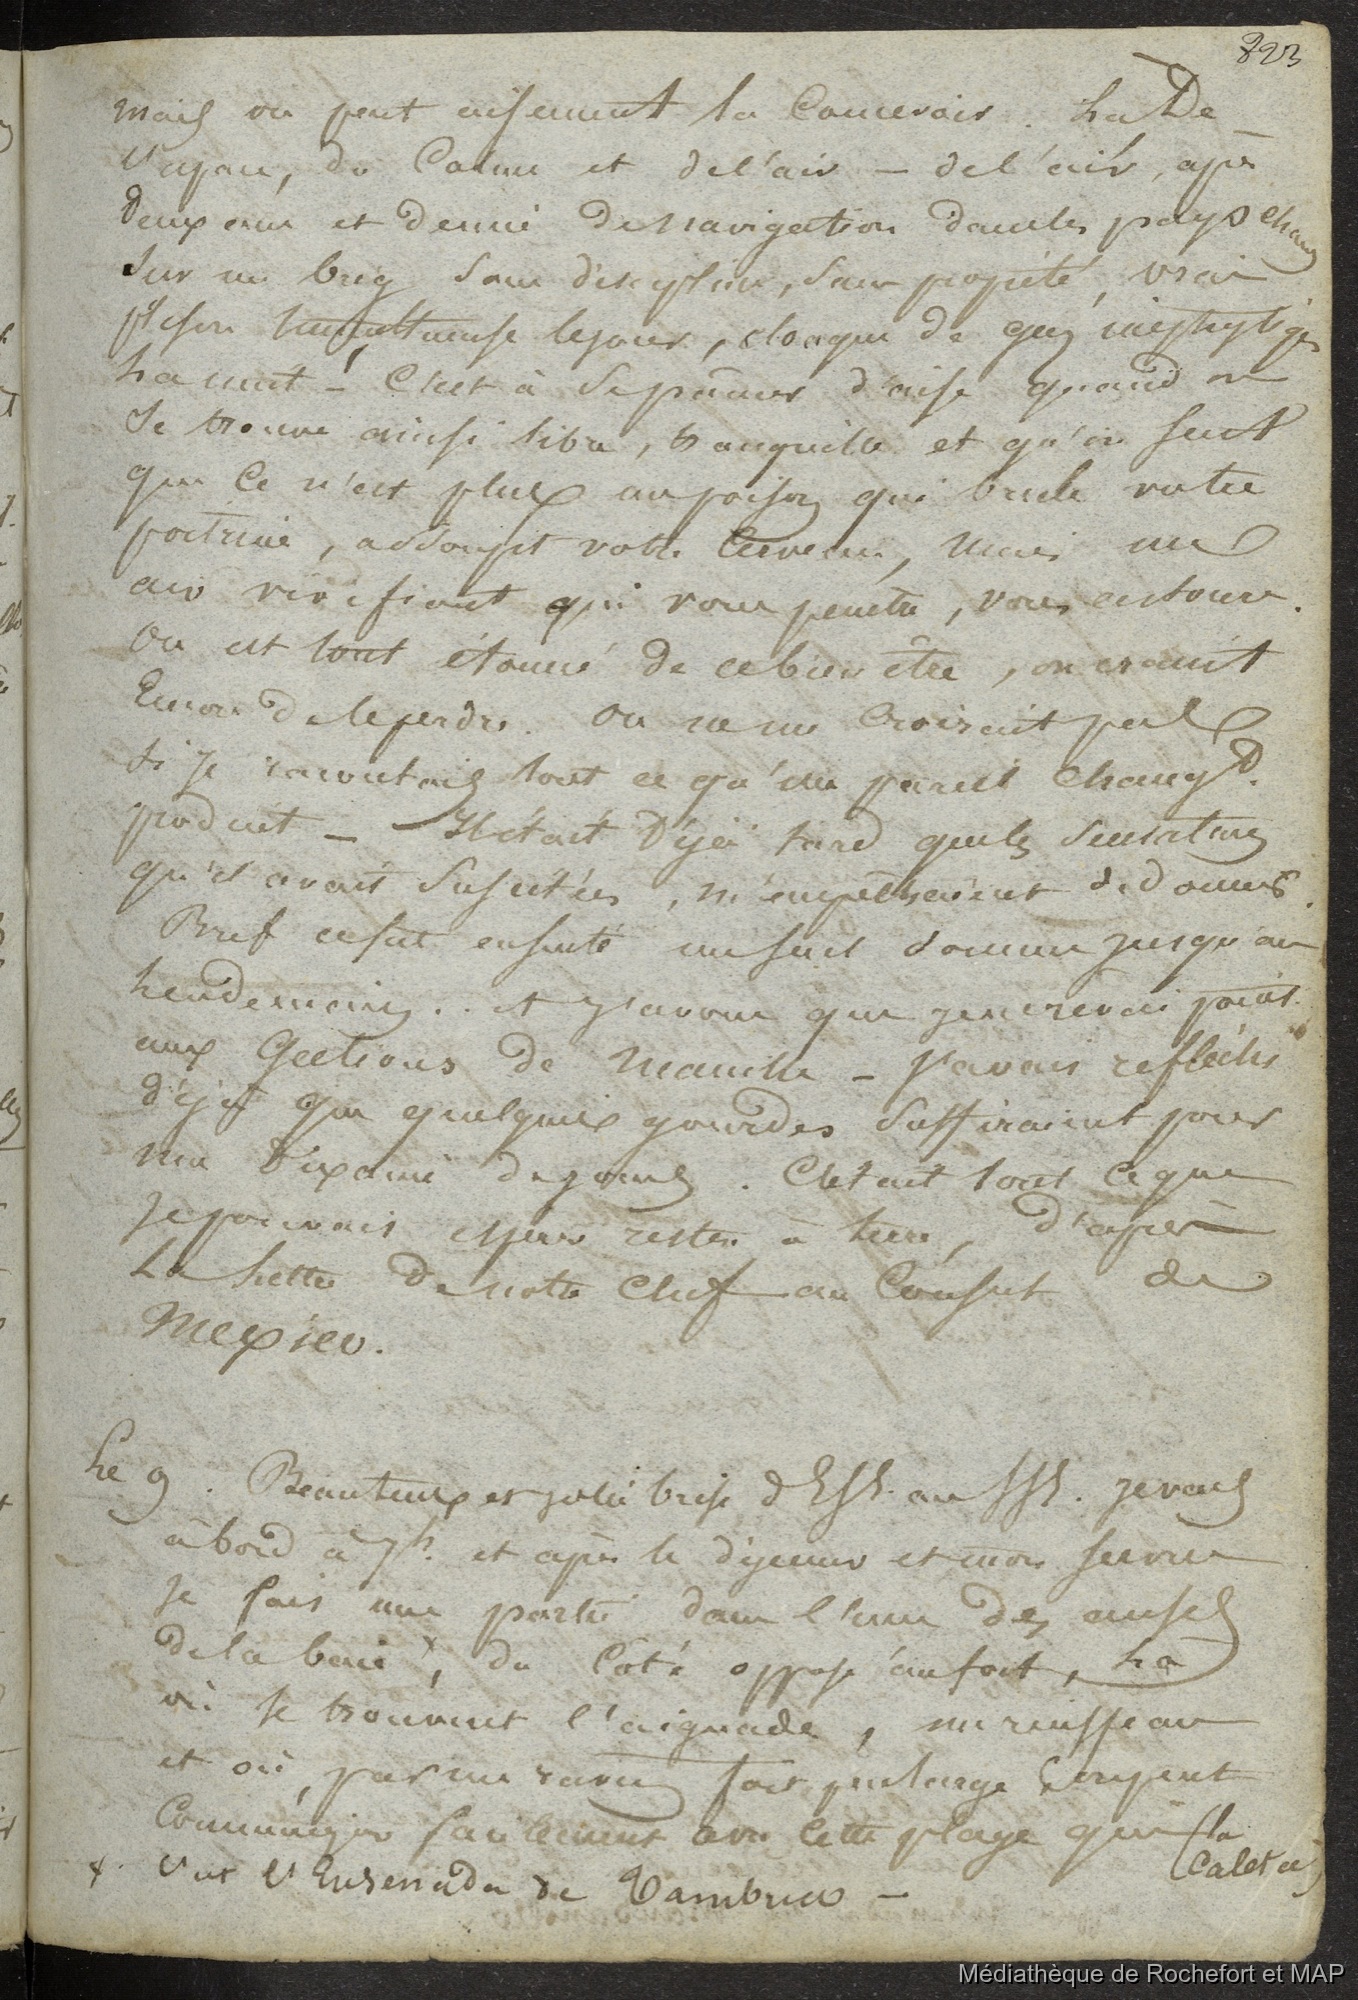 823
mais on peut aisement la Concevoir. Là De
l'espace, du Calme et de l'air — de l'air, après
deux ans et demi de navigation dans les pays chauds
Sur un brig sans discipline, sans propreté, vrai
prison tumultueuse le jour, cloaque de gaz méphytiques
La nuit — C'est à Se pâmer d'aise quand on
Se trouve ainsi libre, tranquille et qu'on Sent
que Ce n'est plus un poison qui brule votre
poitrine, assoupit votre Cerveau, Mais un
air vivifiant qui vous penètre, vous entoure.
On est tout étonné de ce bien être, on craint
Encore de le perdre. On ne me Croirait pas
Si Je racontais tout ce qu'un pareil Chang.t
produit — Il était Déjà tard que les Sensations
qu'il avait Suscitées, m'empêchaient de dormir.
Bref ce fut ensuite un seul somme jusqu'au
Lendemain .. et J'avoue que je ne rêvai point
aux Gections de Manille — J'avais refléchi
déjà que quelques gourdes Suffiraient pour
une Dixaine de jours. C'était tout Ce que
Je pouvais espérer rester à terre, d'après
La Lettre De notre Chef au Consul de
Mexico.
Le 9. Beau tems et jolie brise d'ESE. au SSE. Je vais
à bord à 7h. et après le dejeuner et mon Service
Je fais une partie dans l'une des anses
de la baie x, du Côté opposé au fort, Là
où Se trouvent l'aiguade, un ruisseau
et où, par un ravin fort peu large Serpent
Communique facilement avec Cette plage qui (la
Caleta)
x. C'est l'Ensenada de Tambuco —
Médiathèque de Rochefort et MAP